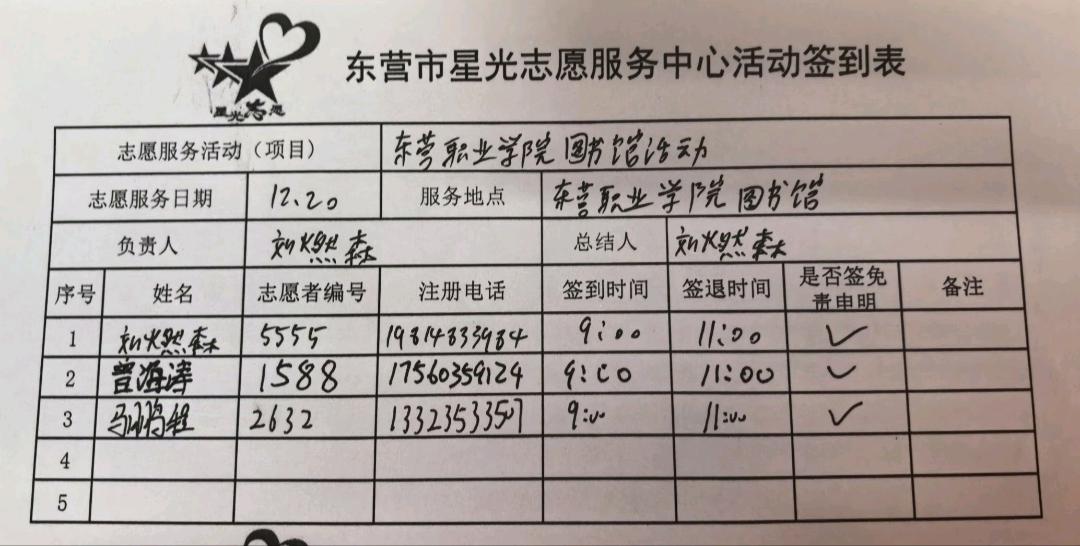 星光志愿
东营市星光志愿服务中心活动签到表
志愿服务活动（项目） 东营职业学院图书馆活动
志愿服务日期 12.20 服务地点 东营职业学院图书馆
负责人 刘燃森 总结人 刘燃森
序号 姓名 志愿者编号 注册电话 签到时间 签退时间 是否签免责申明 备注
1 刘燃森 5555 19814833984 9:00 11:00 ✓
2 曾海涛 1588 17560359124 9:00 11:00 ✓
3 2632 9:00 11:00 ✓
4
5